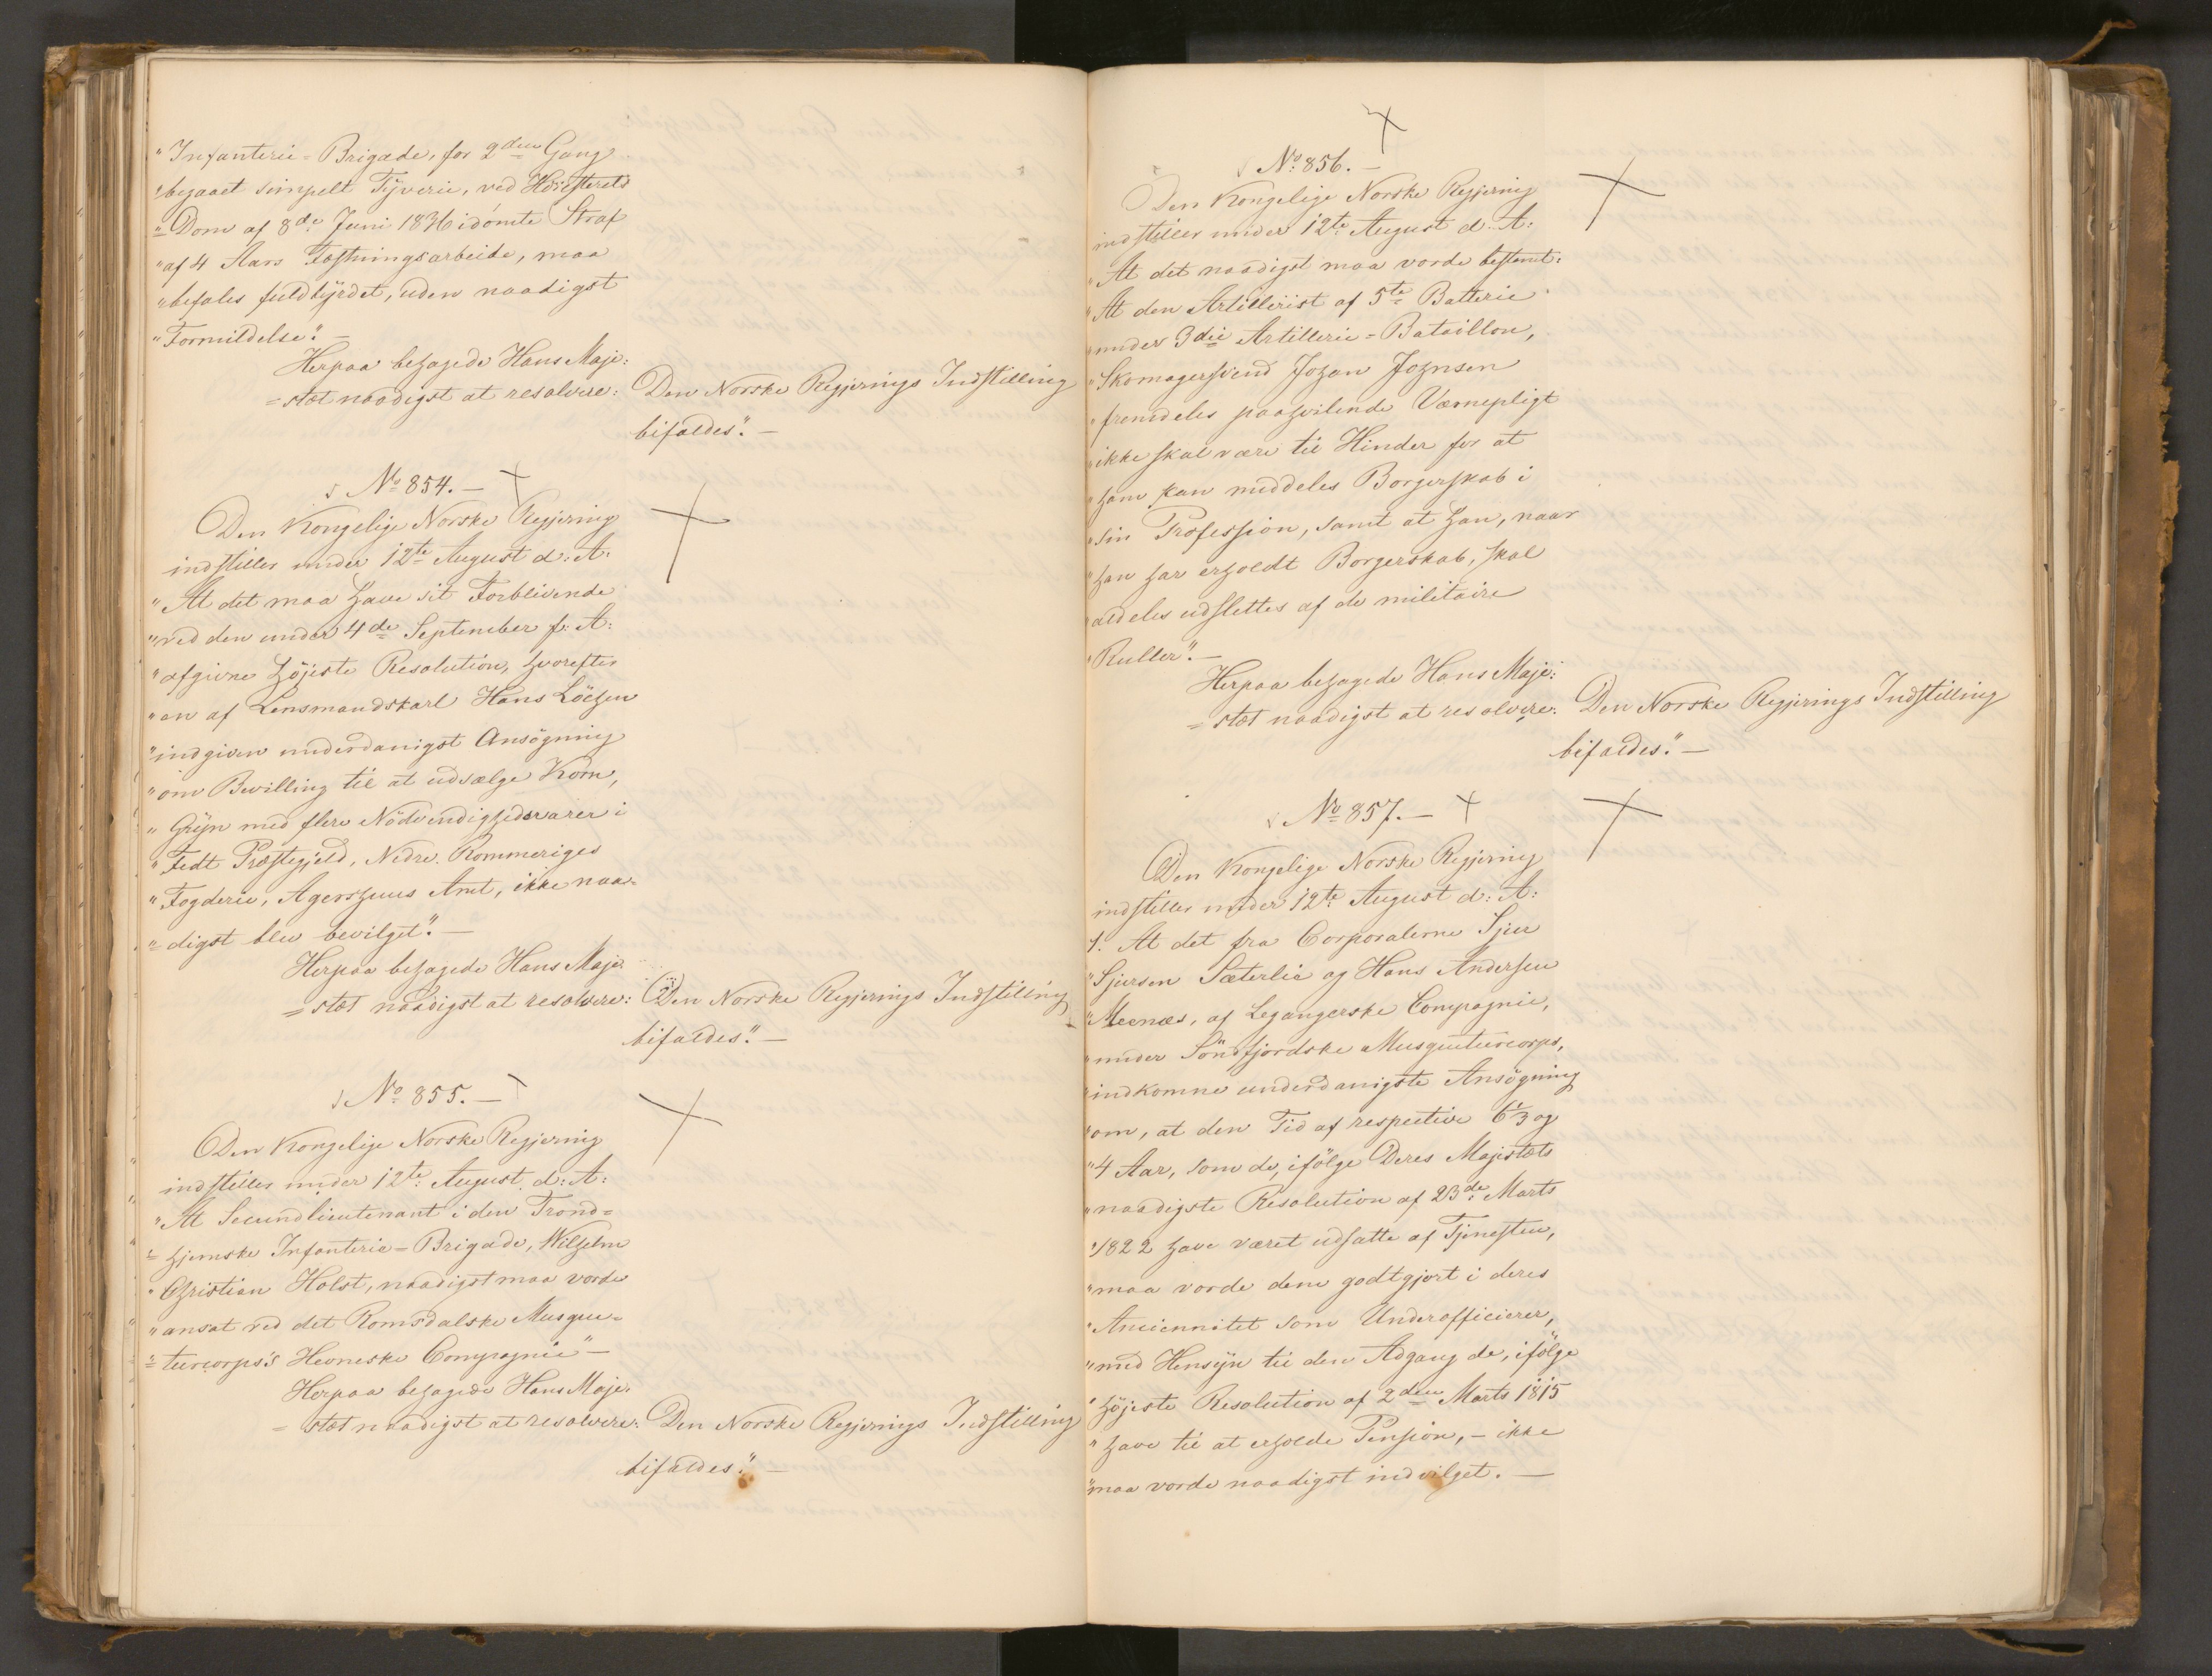 "Infanterie=Brigade, for 2den Gang
"begaaet simpelt Tyverie, ved Høiesterets
"Dom af 8de Juni 1836 idömte Straf
"af 4 Aars Fæstningsarbeide, maa
"befales fuldbyrdet, uden naadigst
"Formildelse". —
Herpaa behagede Hans Maje=
=stæt naadigst at resolvere: Den Norske Regjerings Indstilling
bifaldes". —
No 854. —
Den Kongelige Norske Regjering
indstiller under 12te August d: A:
"At det maa have sit Forblivende
"ved den under 4de September f: A:
"afgivne höjeste Resolution, hvorefter
"en af Lensmandskarl Hans
"indgiven underdanigst Ansögning
"om Bevilling til at udsælge Korn,
"Gryn med flere Nödvendighedsvarer i
"Fedt Præstegjeld, Nedre Rommeriges
"Fogderie, Agershuus Amt, ikke naa=
"=digst blev bevilget". —
Herpaa behagede Hans Maje=
=stæt naadigst at resolvere: Den Norske Regjerings Indstilling
bifaldes". —
No 855. —
Den Kongelige Norske Regjering
indstiller under 12te August d: A:
"At Secundlieutenant i den Trond=
"=hjemske Infanterie=Brigade, Wilhelm
"Christian Holst, naadigst maa vorde
"ansat ved det Romsdalske Musque=
"=teercorps's Hevneske Compagnie" —
Herpaa behagede Hans Maje=
=stæt naadigst at resolvere: Den Norske Regjerings Indstilling
bifaldes". —
No 856. —
Den Kongelige Norske Regjering
indstiller under 12te August d: A:
"At det naadigst maa vorde bestemt:
"At den Artillerist af 5te Batterie
"under 3die Artillerie=Bataillon,
"Skomagersvend Johan Johnsen
"fremdeles paahvilende Værnepligt
"ikke skal være til Hinder for at
"ham kan meddeles Borgerskab i
"sin Profession, samt at han, naar
"han har erholdt Borgerskab, skal
"aldeles udslettes af de militaire
"Ruller". —
Herpaa behagede Hans Maje=
=stæt naadigst at resolvere: Den Norske Regjerings Indstilling
bifaldes". —
No 857. —
Den Kongelige Norske Regjering
indstiller under 12te August d: A:
1. At det fra Corporalerne Sjur
"Sjursen Sæterlie og Hans Andersen
", af Legangerske Compagnie,
"under Söndfjordske Musqueteercorps,
"indkomne underdanigste Ansögning
"om, at den Tid af respective 6 1/3 og
"4 Aar, som de, ifölge Deres Majestæts
"naadigste Resolution af 23de Marts
"1822 have været udsatte af Tjenesten,
"maa vorde dem godtgjort i deres
"Anciennitet som Underofficierer,
"med Hensyn til den Adgang de, ifölge
"höjeste Resolution af 2den Marts 1815
"have til at erholde Pension, — ikke
"maa vorde naadigst indvilget. —